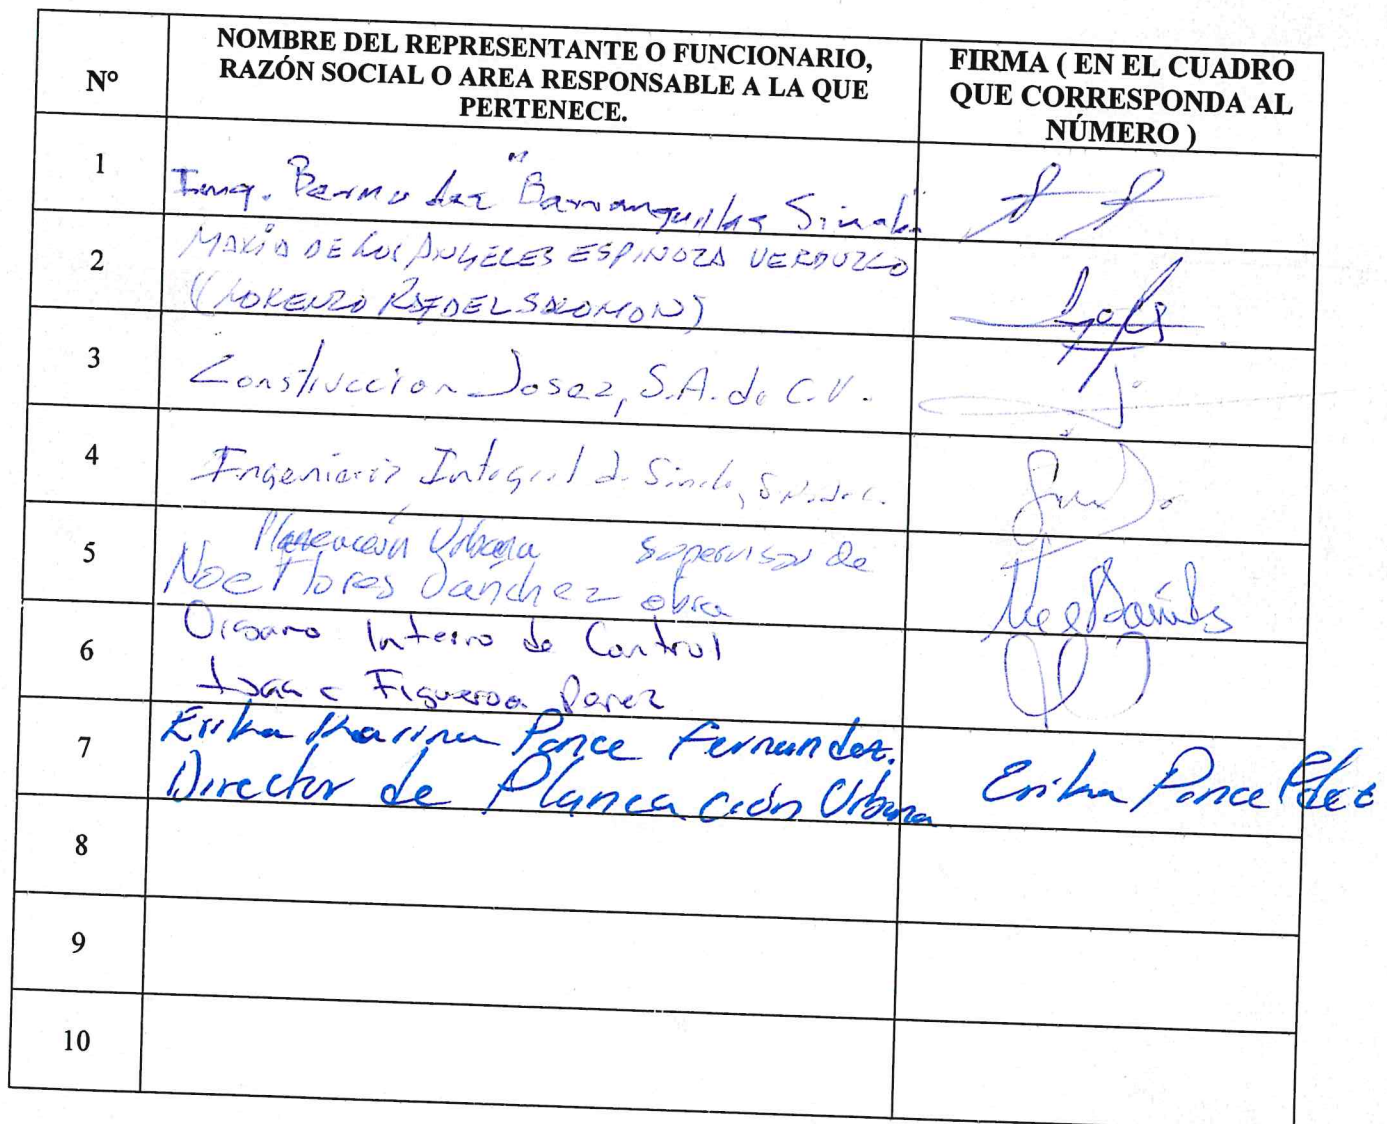 Nº
NOMBRE DEL REPRESENTANTE O FUNCIONARIO,
RAZÓN SOCIAL O AREA RESPONSABLE A LA QUE
PERTENECE.
FIRMA ( EN EL CUADRO
QUE CORRESPONDA AL
NÚMERO )
1
Ing. Bermudez "Barranquillas Sinaloa"
2
MARÍA DE LOS ANGELES ESPINOZA VERDUZCO
(LORENZO RAFAEL SALOMON)
3
Construccion Josez, S.A. de C.V.
4
Ingenieria Integral de Sinaloa,
5
Planeación Urbana supervisor de
Noe Flores Sánchez obra
6
Organo Interno de Control
Isaac Figueroa Parez
7
Erika Karina Ponce Fernandez.
Director de Planeación Urbana
Erika Ponce Fdez
8
9
10